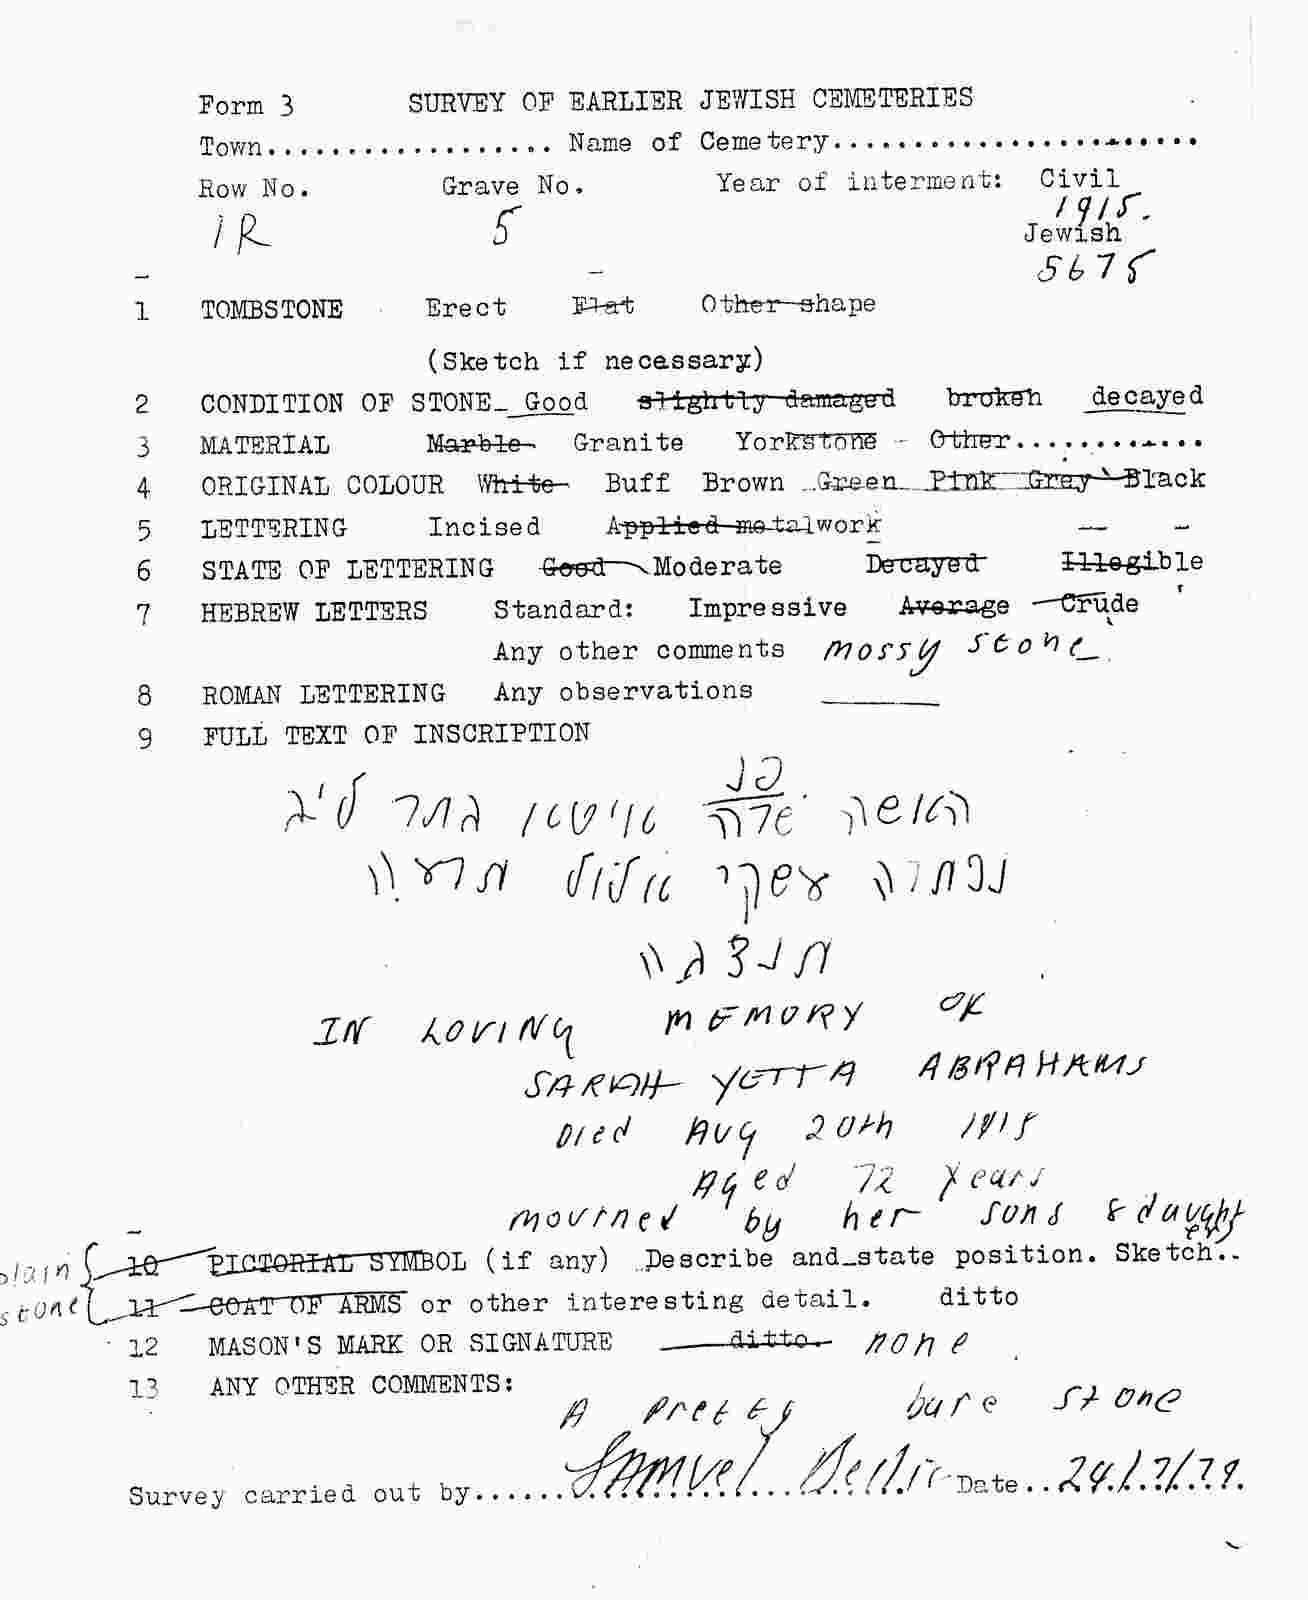 Form 3 SURVEY OF EARLIER JEWISH CEMETERIES
Town.................. Name of Cemetery.......................
Row No. Grave No. Year of interment: Civil
1R 5 1915.
Jewish
5675
1 TOMBSTONE Erect Flat Other shape
(Sketch if necessary)
2 CONDITION OF STONE Good slightly damaged broken decayed
3 MATERIAL Marble Granite Yorkstone - Other............
4 ORIGINAL COLOUR White Buff Brown Green Pink Grey Black
5 LETTERING Incised Applied metalwork
6 STATE OF LETTERING Good Moderate Decayed Illegible
7 HEBREW LETTERS Standard: Impressive Average Crude
Any other comments mossy stone
8 ROMAN LETTERING Any observations
9 FULL TEXT OF INSCRIPTION
פנ
האשה שרה איטא בתר ליב
נפתרה עשקי אלול תרעה
תנצבה
IN LOVING MEMORY OF
SARAH YETTA ABRAHAMS
Died AUg 20th 1915
Aged 72 years
mourned by her sons & daughters
plain stone
10 PICTORIAL SYMBOL (if any) Describe and state position. Sketch..
11 COAT OF ARMS or other interesting detail. ditto
12 MASON'S MARK OR SIGNATURE ditto. none
13 ANY OTHER COMMENTS:
A pretty bare stone
Survey carried out by...... Samuel Date..